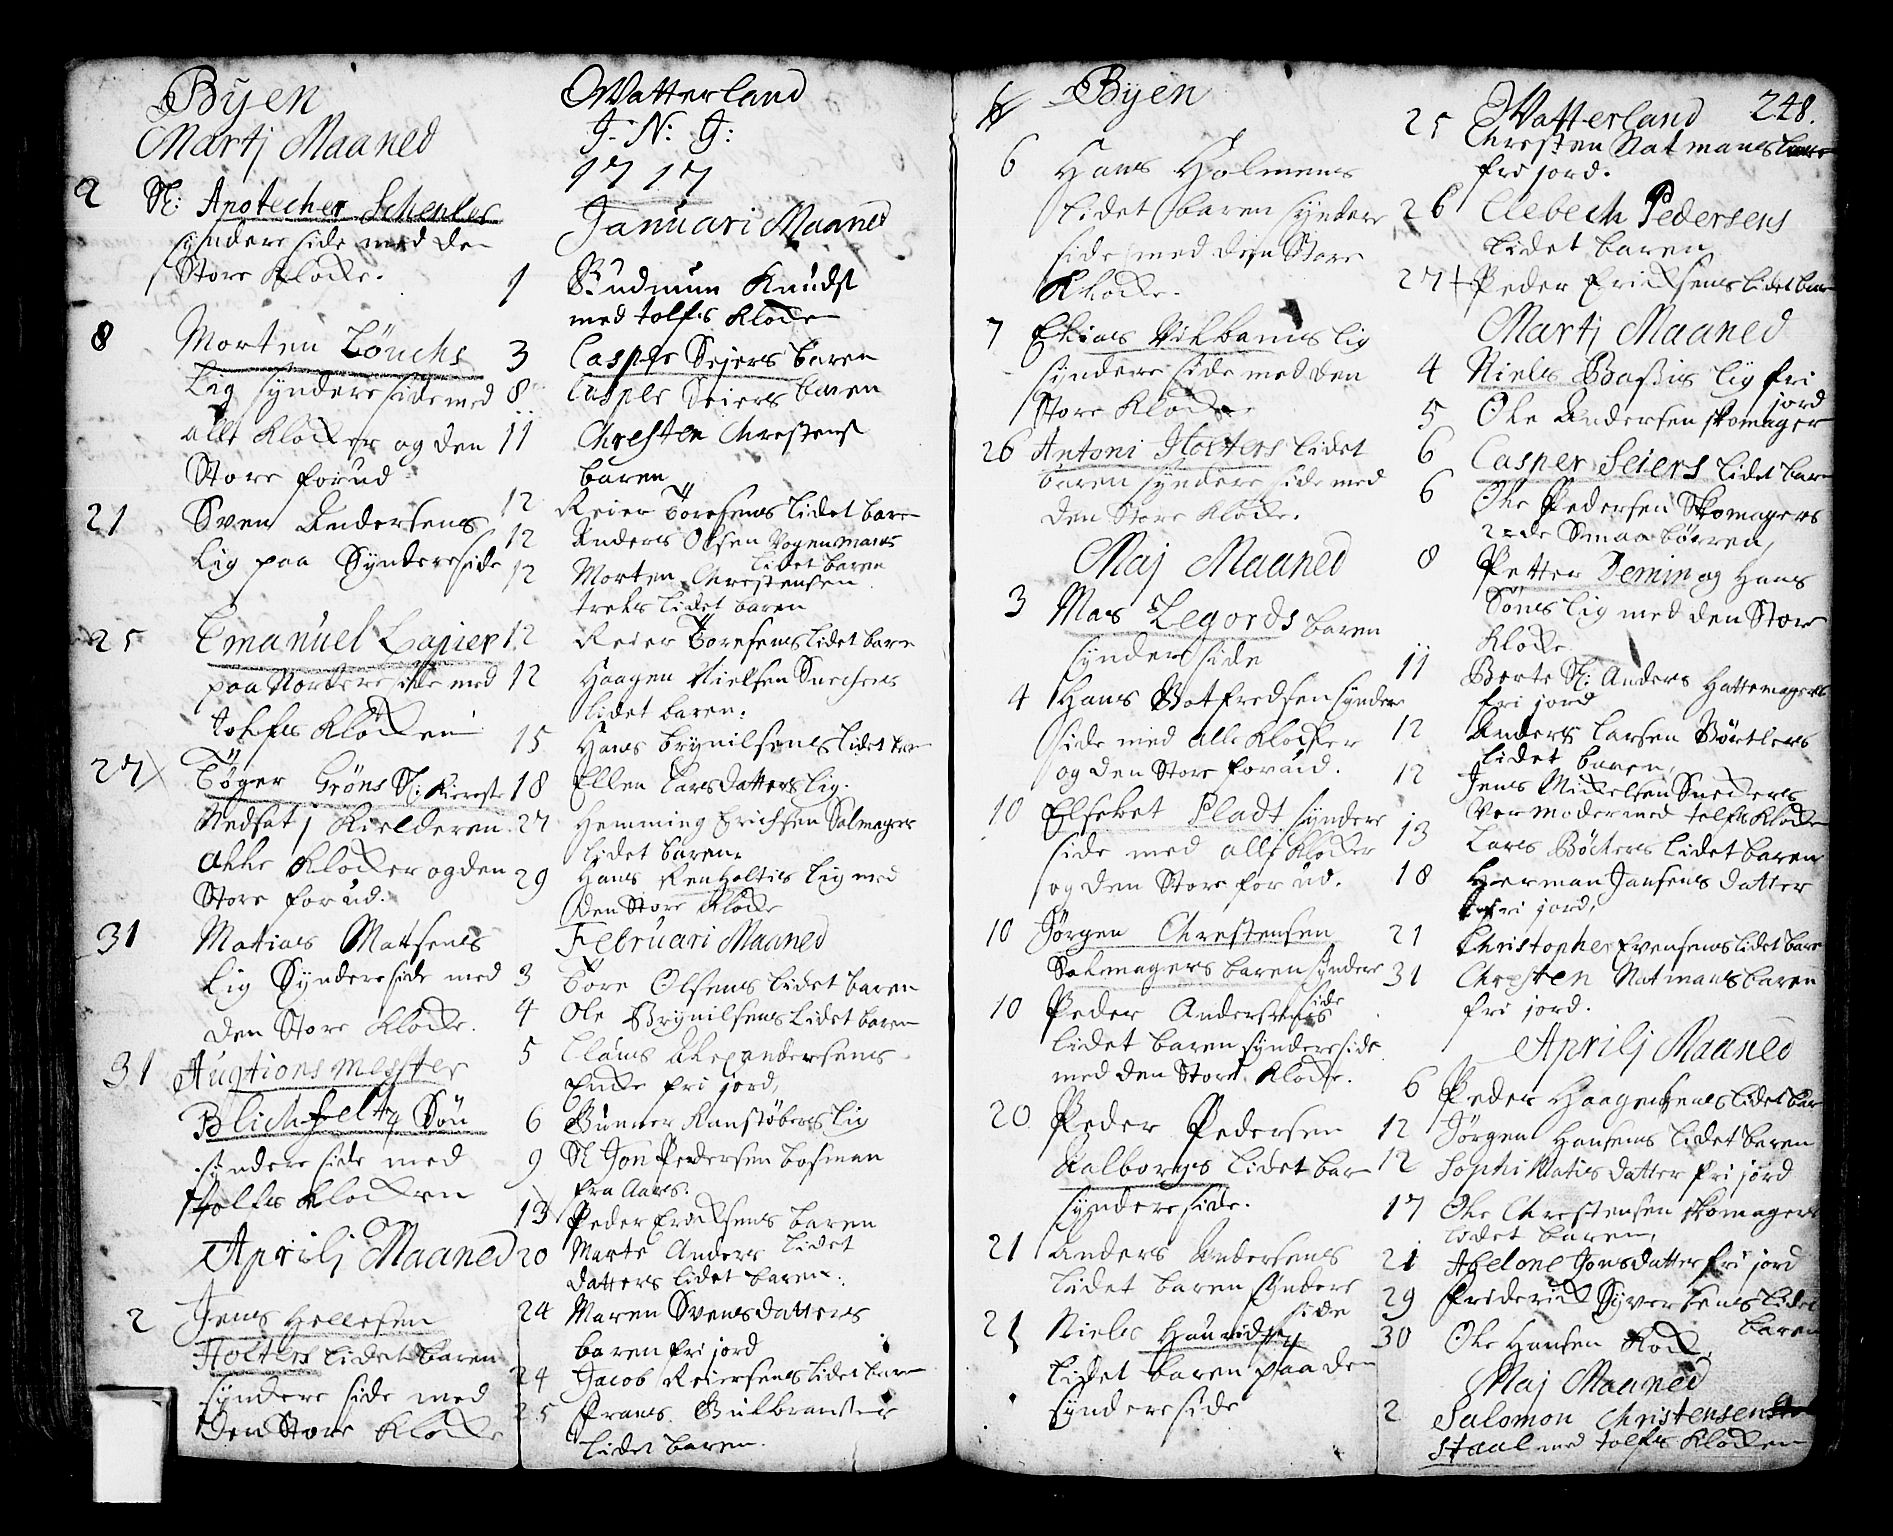 Byen
Martj Maaned
2 Sl: Apotecher Schenles
syndere side med den
Store Klocke.
8 Morten Löuchs
Lig syndere side med
alle Klocker og den
Store forud
21 Sven Andersens
Lig paa Syndere side
25 Emanuel Lapier
paa Nordere side med
tolfs Klocken
27 Töger Gröns Sl: Kierest
Nedsat j Kielderen
alle Klocker og den
Store forud.
31 Matias Matsens
Lig Syndere side med
den Store Klocke.
31 Augtions meyster
Blichfeltz Sön
syndere side med
tolfs Klocken
Aprilj Maaned
2 Jens Hellesen
Holters lidet baren
syndere side med
den Store Klocke
Watterland
J. N: J:
1717
Januari Maaned
1 Gudmun Knudst
med tolfs Klocken
3 Casper Sejers baren
8 Casper Seiers baren
11 Chresten Chrestens
baren
12 Reier Toresens lidet baren
12 Anders Olsen Vognmans
lidet baren
12 Morten Chrestensen
treks lidet baren
12 Reier Toresens lidet baren
12 Haagen Nielsen Snechers
lidet baren.
15 Hans Brynilsens lidet baren
18 Ellen Larsdatters lig.
27 Hemming Erichsen Salmagers
lidet baren.
29 Hans Renholtis lig med
den Store Klocke
Februari Maaned
3 Tore Olsens lidet baren
4 Ole Brynilsens lidet baren
5 Claus Alexandersens
Encke fri jord,
6 Gunner Kanstöbers lig
9 Sl Jon Pedersen bosman
fra Aars.
13 Peder Ericksens baren
lidet
20 Marte Anders
datters lidet baren.
24 Maren Svensdatters
baren fri jord
24 Jacob Reiersens lidet baren
25 Frans Gulbransens
lidet baren.
Byen
6 Hans Holmens
lidet baren syndere
side med den Store
Klocke.
7 Elias Vilbarns lig
syndere side med den
Store Klocke
26 Antoni Holters lidet
baren syndere side med
den Store Klocke.
Maj Maaned
3 Mas Legords baren
synder side
4 Hans Botfredsen syndere
side med alle Klocker
og den Store forud.
10 Elsebet Pladt syndere
side med alle Klocker
og den Store for ud.
10 Jörgen Chrestensen
Salmagers baren syndere
side
10 Peder Andersens
lidet baren syndere side
med den Store Klocke.
20 Peder Pedersen
Aalborgs lidet bar
syndere side.
21 Anders Andersens
lidet baren syndere
side
21 Niels
lidet baren paa den
syndere side
Watterland 248.
25 Chresten Natmans
fri jord.
26 Elebech Pedersens
lidet baren
27 Peder Ericksens lidet baren
Martj Maaned
4 Niels Bassis lig fri
jord
5 Ole Andersen skomager
6 Casper Seiers lidet baren
6 Ole Pedersen Skomagers
2 de Smaa börren,
8 Petter Demin og Hans
Söns lig med den Store
Klocke
11 Berte Sl: Anders Hattemagers
fri jord
12 Anders Larsen Börtlers
lidet baren,
12 Jens Mickelsen Sneckers
Vermoder med tolfs Klocken
13 Lars Böckers lidet baren
18 Herman Jansens datter
fri jord,
21 Christopher Evensens lidet baren
31 Chresten Natmans baren
fri jord.
Aprilj Maaned
6 Peder Haagensens lidet bar
12 Jörgen Hansens lidet baren
12 Sophi Matis datter fri jord
17 Ole Chrestensen skomagers
lidet baren,
21 Abelone Jonsdatter fri jord
29 Friderick Syvertsens lidet
baren
30 Ole Hansen Kock,
Maj Maaned
2 Salomon Christensen
Staal med tolfs Klocken